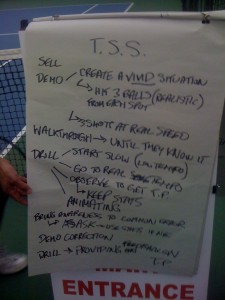 T.S.S.
SELL
DEMO CREATE A VIVID SITUATION
HIT 3 BALLS (REALISTIC)
FROM EACH SPOT
3 SHOTS AT REAL SPEED
WALKTHROUGH → UNTIL THEY KNOW IT
DRILL START SLOW
GO TO REAL SPEED
OBSERVE TO GET T.P.
KEEP STATS
ANIMATING
BRING AWARENESS TO COMMON ERROR
ASK
DEMO CORRECTION
DRILL → PROVIDING
T.P.
ENTRANCE